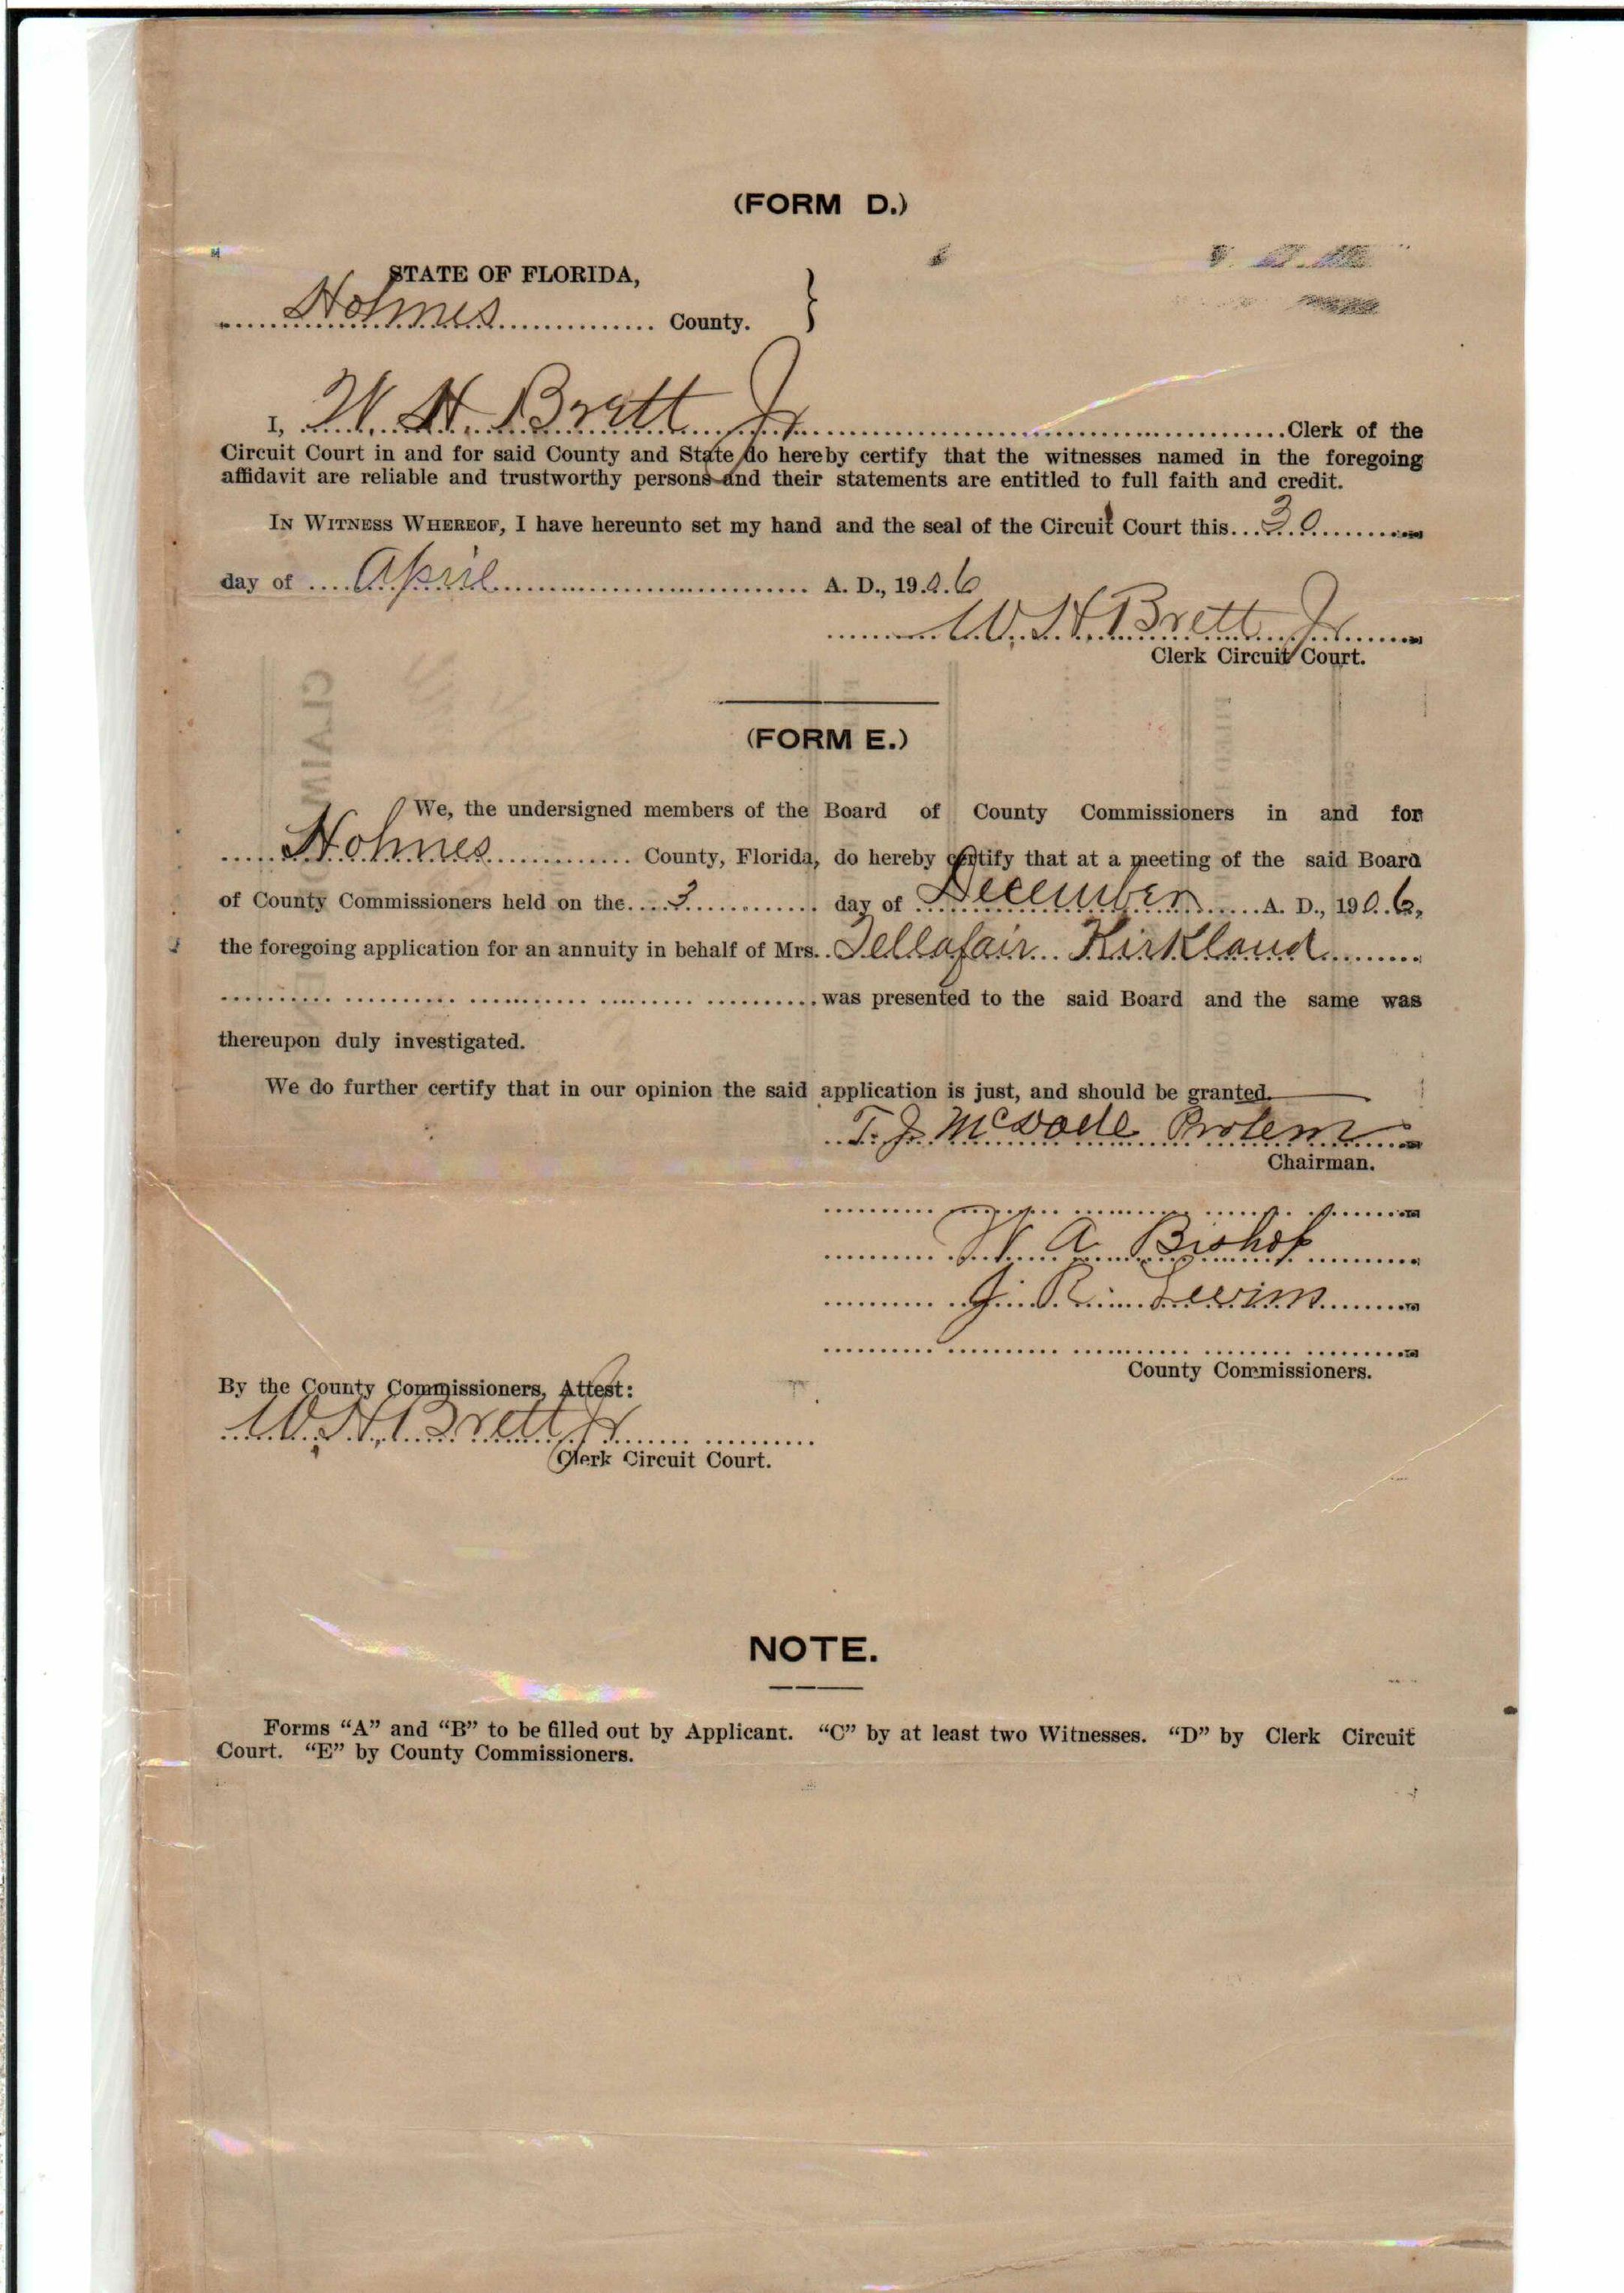 (FORM D.)
STATE OF FLORIDA,
Holmes County.
I, W. H. Brett Jr Clerk of the
Circuit Court in and for said County and State do hereby certify that the witnesses named in the foregoing
affidavit are reliable and trustworthy persons and their statements are entitled to full faith and credit.
IN WITNESS WHEREOF, I have hereunto set my hand and the seal of the Circuit Court this 30
day of April A. D., 1906
W. H. Brett Jr
Clerk Circuit Court.
(FORM E.)
We, the undersigned members of the Board of County Commissioners in and for
Holmes County, Florida, do hereby certify that at a meeting of the said Board
of County Commissioners held on the 3 day of December A. D., 1906,
the foregoing application for an annuity in behalf of Mrs. Tellafair Kirkland
was presented to the said Board and the same was
thereupon duly investigated.
We do further certify that in our opinion the said application is just, and should be granted.
T. J. Protem
Chairman.
W A Bishop
J. R.
County Commissioners.
By the County Commissioners, Attest:
W. H. Brett Jr
Clerk Circuit Court.
NOTE.
Forms “A” and “B” to be filled out by Applicant. “C” by at least two Witnesses. “D” by Clerk Circuit
Court. “E” by County Commissioners.